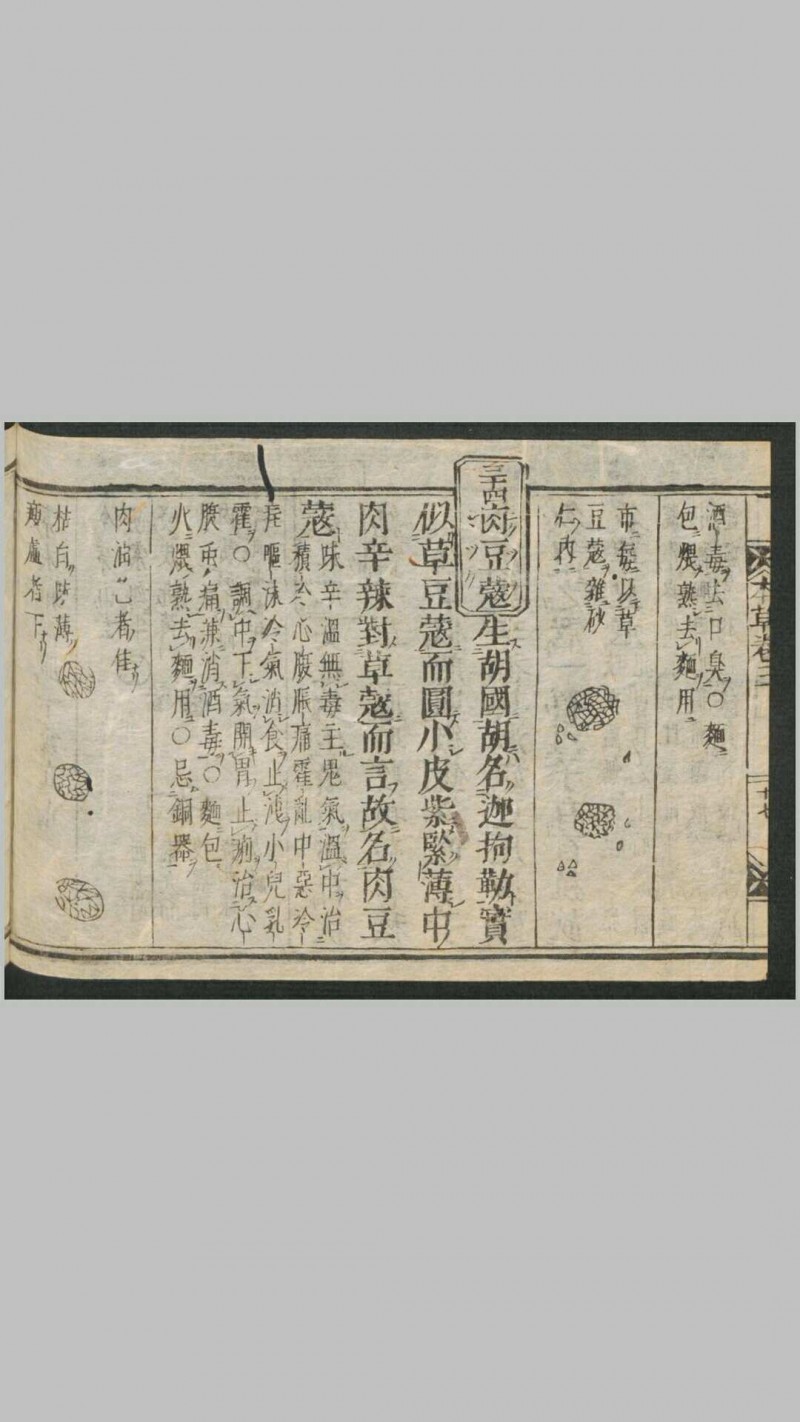 酒毒去口臭〇麵
包煨熟去麵用
市每以草
豆蔻雜砂
仁内
三十四肉豆蔻生胡國胡名迦拘勒實
似草豆蔻而圓小皮紫緊薄中
肉辛辣對草蔻而言故名肉豆
蔻
味辛溫無毒主鬼氣溫中治
積冷心腹脹痛霍亂中惡冷
疰嘔沫冷氣消食止洩小兒乳
霍〇調中下氣開胃止痢治心
腹虫痛兼消酒毒〇麵包
火煨熟去麵用〇忌銅器
肉油色者佳
枯白
者下